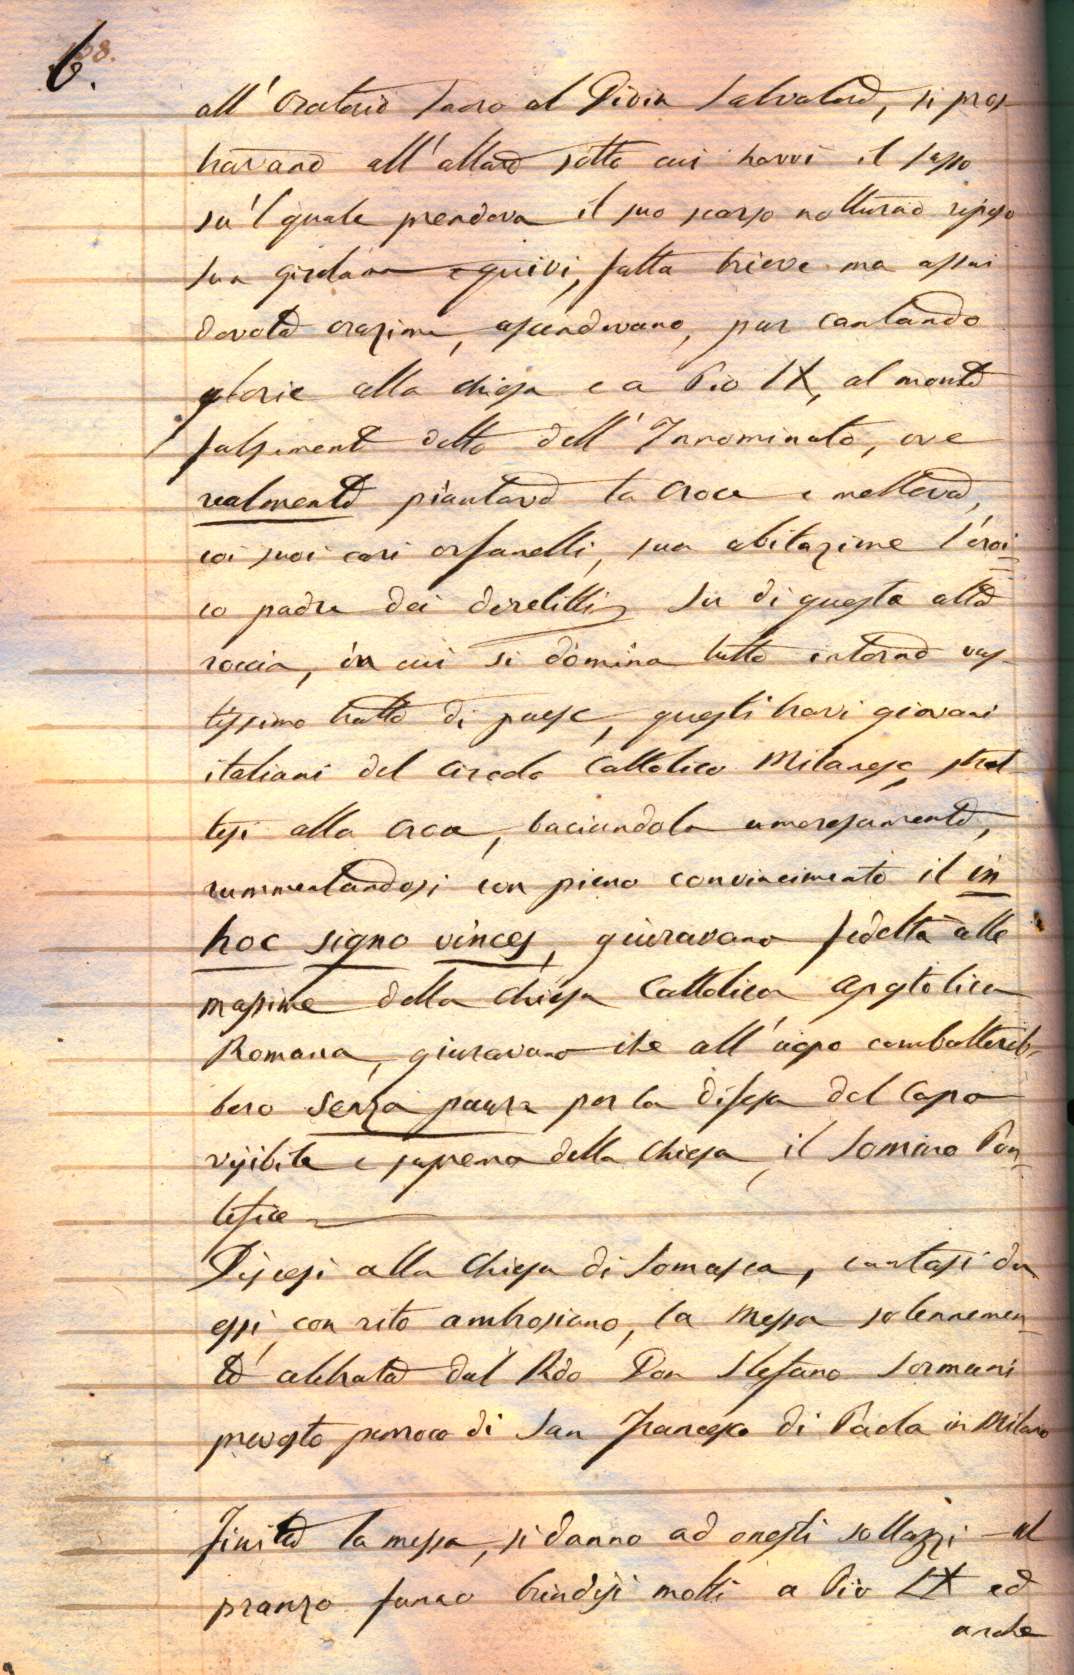 6.
all' Oratorio sacro al Divin Salvatore, si pros-
travano all'altare sotto cui havvi il sasso
su'l quale prendeva il suo scarso notturno riposo
San Girolamo e quivi, fatta brieve ma assai
devota orazione, ascendevano, pur cantando
glorie alla chiesa e a Pio IX, al monte
falsamente detto dell'Innominato, ove
realmente piantava la Croce e metteva,
coi suoi cari orfanelli, sua abitazione l'eroi-
co padre dei derelitti. Su di questa alta
roccia, in cui si domina tutto intorno vas-
tissimo tratto di paese, questi bravi giovani
italiani del Circolo Cattolico Milanese, stret-
tisi alla Croce, baciandola amorosamente,
rammentandosi con pieno convincimento il in
hoc signo vinces, giuravano fedeltà alle
massime della Chiesa Cattolica Apostolica
Romana, giuravano che all'uopo combattereb-
bero senza paura per la difesa del Capo
visibile e supremo della Chiesa, il Sommo Pon-
tefice
Discesi alla Chiesa di Somasca, cantasi da
essi, con rito ambrosiano, la Messa solennemen-
te celebrata dal Rdo Don Stefano Sormani
prevosto parroco di San Francesco di Paola in Milano
Finita la messa, si danno ad onesti sollazzi - al
pranzo fanno brindisi molti a Pio IX ed
anche